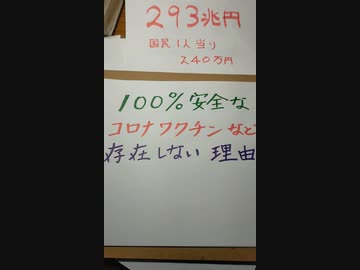 293兆円
国民1人当り
240万円
100%安全な
コロナワクチンなど
存在しない理由